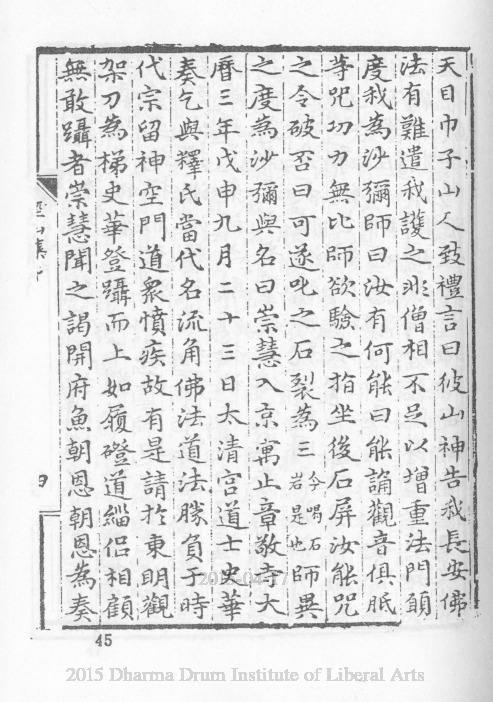 天目巾子山人致禮言曰彼山神告我長安佛
法有難遣我護之非僧相不足以增重法門願
度我為沙彌師曰汝有何能曰能誦觀音俱胝
等咒功力無比師欲驗之指坐後石屏汝能咒
之令破否曰可遂叱之石裂為三今喝石岩是也師異
之度為沙彌與名曰崇慧入京寓止章敬寺大
曆三年戊申九月二十三日太清宮道士史華
奏乞與釋氏當代名流角佛法道法勝負于時
代宗留神空門道眾憤疾故有是請於東明觀
架刀為梯史華登躡而上如履磴道緇侶相顧
無敢躡者崇慧聞之謁開府魚朝恩朝恩為奏
45
2015 Dharma Drum Institute of Liberal Arts